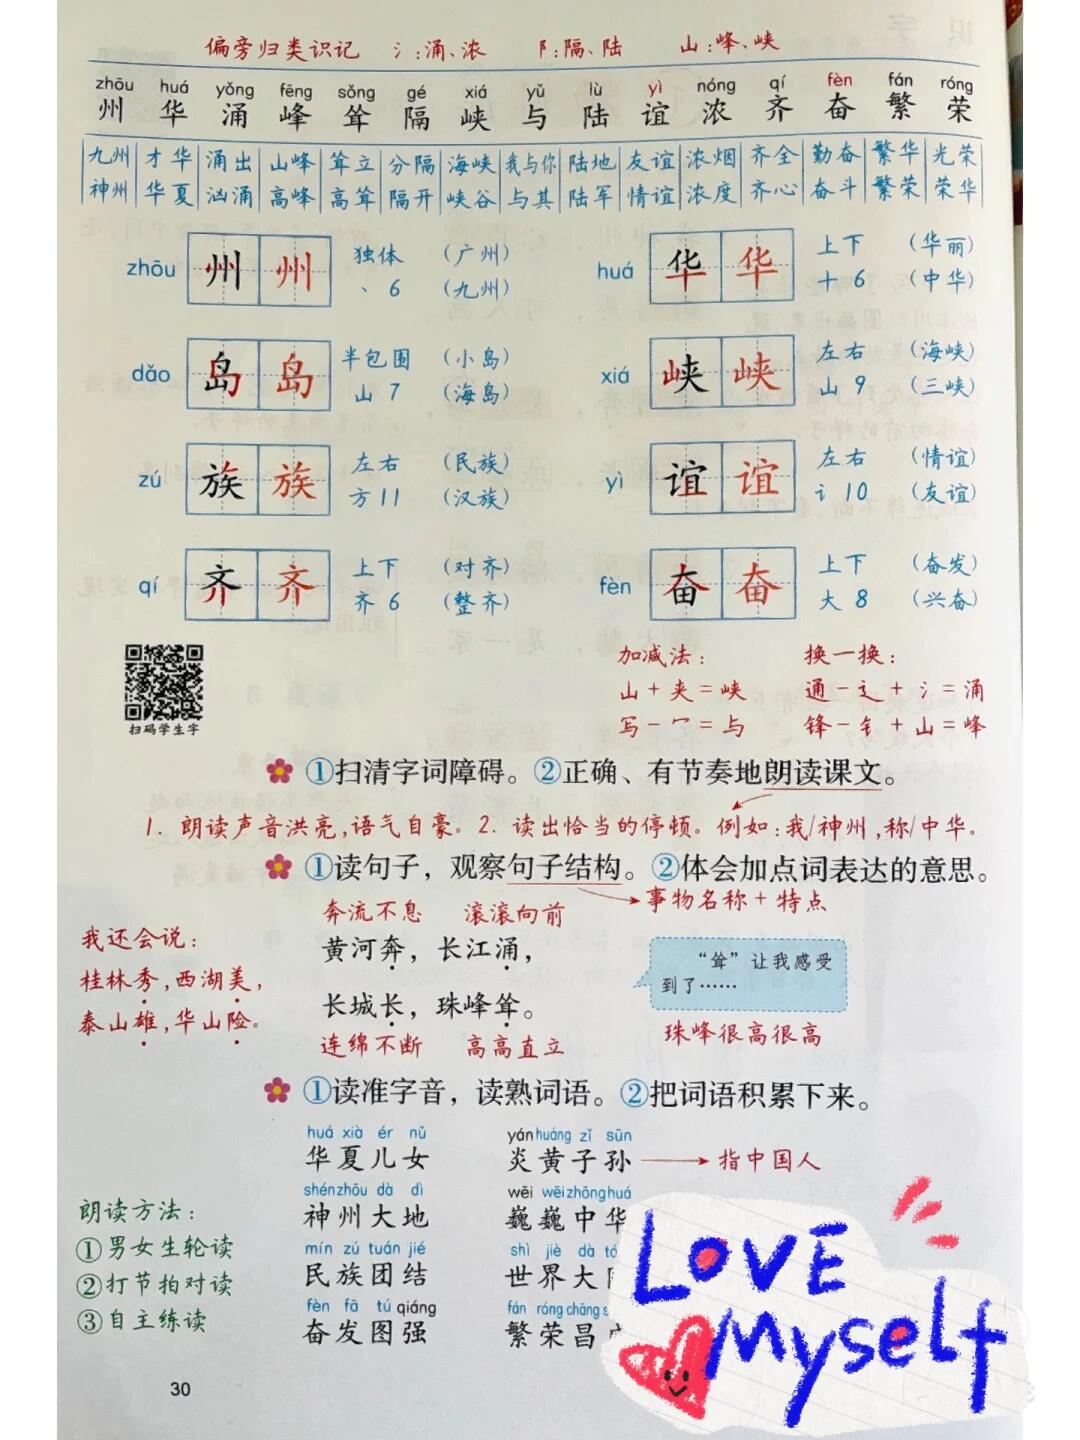 偏旁归类识记 氵:涌、浓 阝:隔、陆 山:峰、峡
zhōu huá yǒng fēng sǒng gé xiá yǔ lù yì nóng qí fèn fán róng
州 华 涌 峰 耸 隔 峡 与 陆 谊 浓 齐 奋 繁 荣
九州 才华 涌出 山峰 耸立 分隔 海峡 我与你 陆地 友谊 浓烟 齐全 勤奋 繁华 光荣
神州 华夏 汹涌 高峰 高耸 隔开 峡谷 与其 陆军 情谊 浓度 齐心 奋斗 繁荣 荣华
zhōu 州 州 独体 (广州) huá 华 华 上下 (华丽)
丶 6 (九州) 十 6 (中华)
dǎo 岛 岛 半包围 (小岛) xiá 峡 峡 左右 (海峡)
山 7 (海岛) 山 9 (三峡)
zú 族 族 左右 (民族) yì 谊 谊 左右 (情谊)
方 11 (汉族) 讠 10 (友谊)
qí 齐 齐 上下 (对齐) fèn 奋 奋 上下 (奋发)
齐 6 (整齐) 大 8 (兴奋)
扫码学生字
加减法: 换一换:
山+夹=峡 通-辶+氵=涌
写-冖=与 锋-钅+山=峰
①扫清字词障碍。②正确、有节奏地朗读课文。
1. 朗读声音洪亮,语气自豪。2. 读出恰当的停顿。例如:我/神州,称/中华。
①读句子,观察句子结构。②体会加点词表达的意思。
事物名称+特点
奔流不息 滚滚向前
黄河奔,长江涌,
长城长,珠峰耸。
连绵不断 高高直立
我还会说:
桂林秀,西湖美,
泰山雄,华山险。
“耸”让我感受
到了……
珠峰很高很高
①读准字音,读熟词语。②把词语积累下来。
huá xià ér nǚ yán huáng zǐ sūn
华夏儿女 炎黄子孙 指中国人
shén zhōu dà dì wēi wēi zhōng huá
神州大地 巍巍中华
mín zú tuán jié shì jiè dà
民族团结 世界大
fèn fā tú qiáng fán róng chāng
奋发图强 繁荣昌
朗读方法:
①男女生轮读
②打节拍对读
③自主练读
LOVE
Myself
30